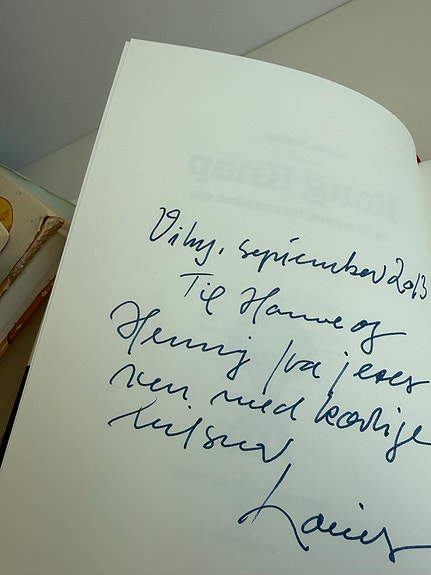 Viby, september 2013
Til Hanne og
Henning fra jeres
ven med kærlige
hilsner